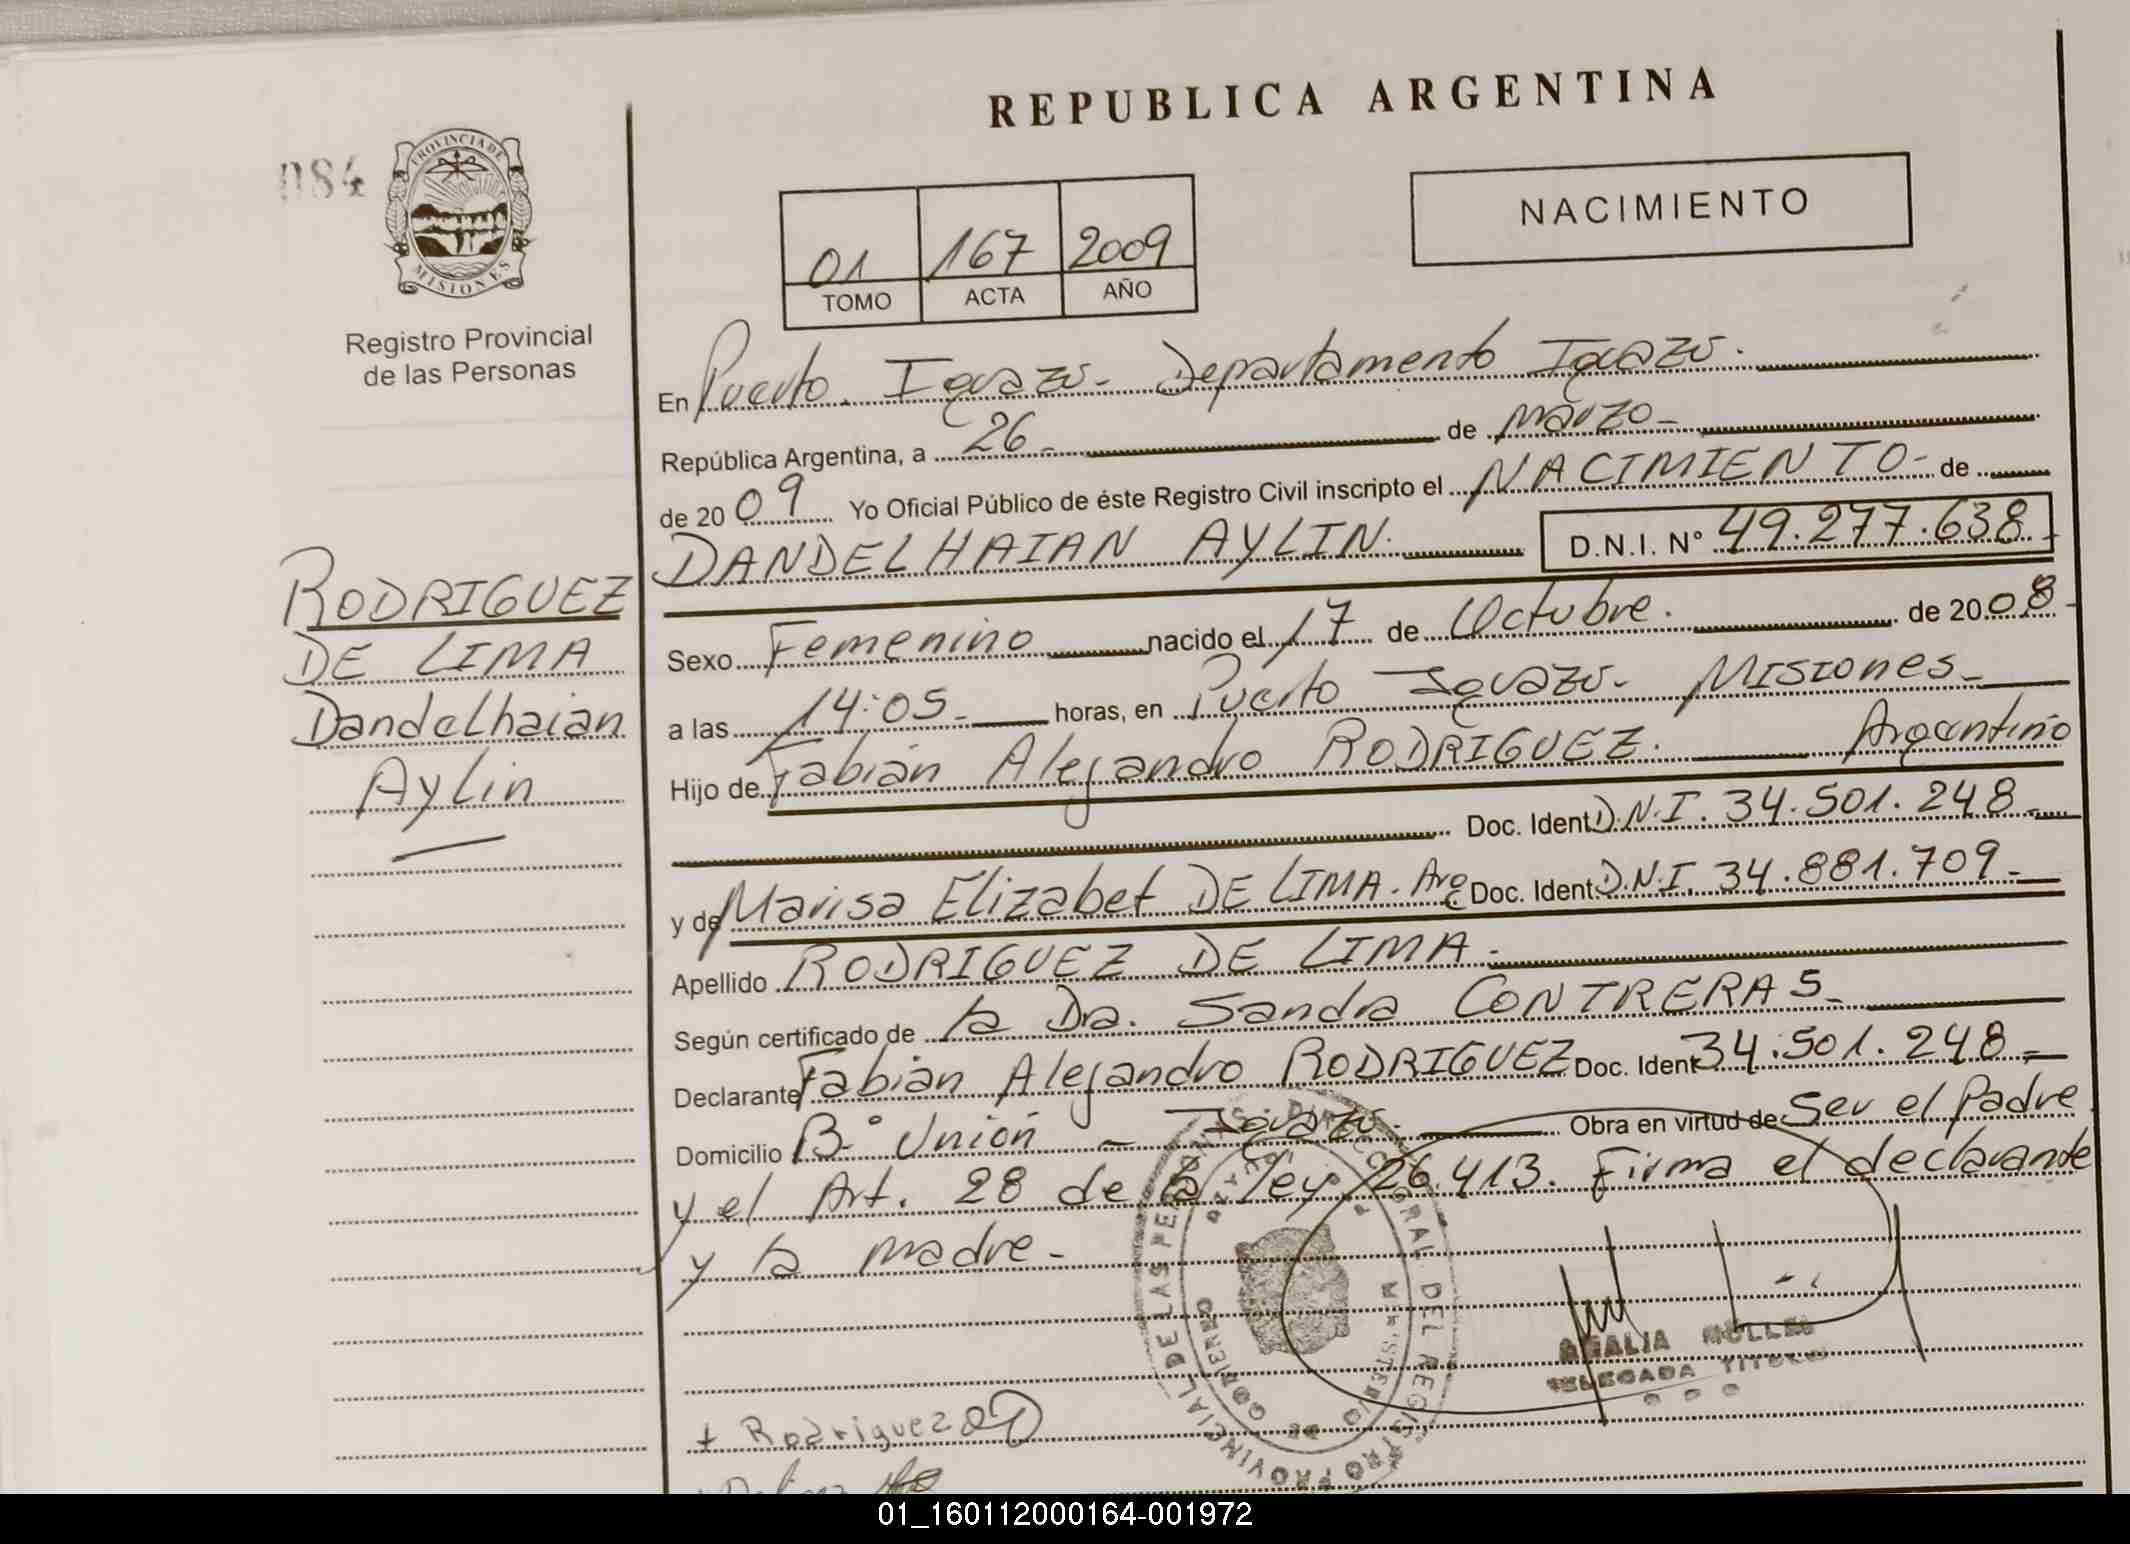 REPUBLICA ARGENTINA
084
PROVINCIA DE
MISIONES
Registro Provincial
de las Personas
NACIMIENTO
01 167 2009
TOMO ACTA AÑO
En Puerto Iguazú - Departamento Iguazú.
República Argentina, a 26 - de Marzo -
de 2009 Yo Oficial Público de éste Registro Civil inscripto el NACIMIENTO - de
DANDELHAIAN AYLIN. D.N.I. N° 49.277.638 -
RODRIGUEZ
DE LIMA
Dandelhaian
Aylin
Sexo Femenino nacido el 17 de Octubre. de 2008 -
a las 14:05 - horas, en Puerto Iguazú - Misiones -
Hijo de Fabián Alejandro RODRIGUEZ. Argentino
Doc. Ident. D.N.I. 34.501.248 -
y de Marisa Elizabet DE LIMA. Arg. Doc. Ident. D.N.I. 34.881.709 -
Apellido RODRIGUEZ DE LIMA -
Según certificado de la Dra. Sandra CONTRERAS -
Declarante Fabián Alejandro RODRIGUEZ Doc. Ident. 34.501.248 -
Domicilio B° Unión - Iguazú - Obra en virtud de Ser el Padre
y el Art. 28 de la ley 26.413. Firma el declarante
y la madre -
AMALIA MULLER
DELEGADA TITULAR
+ Rodriguez
01_160112000164-001972